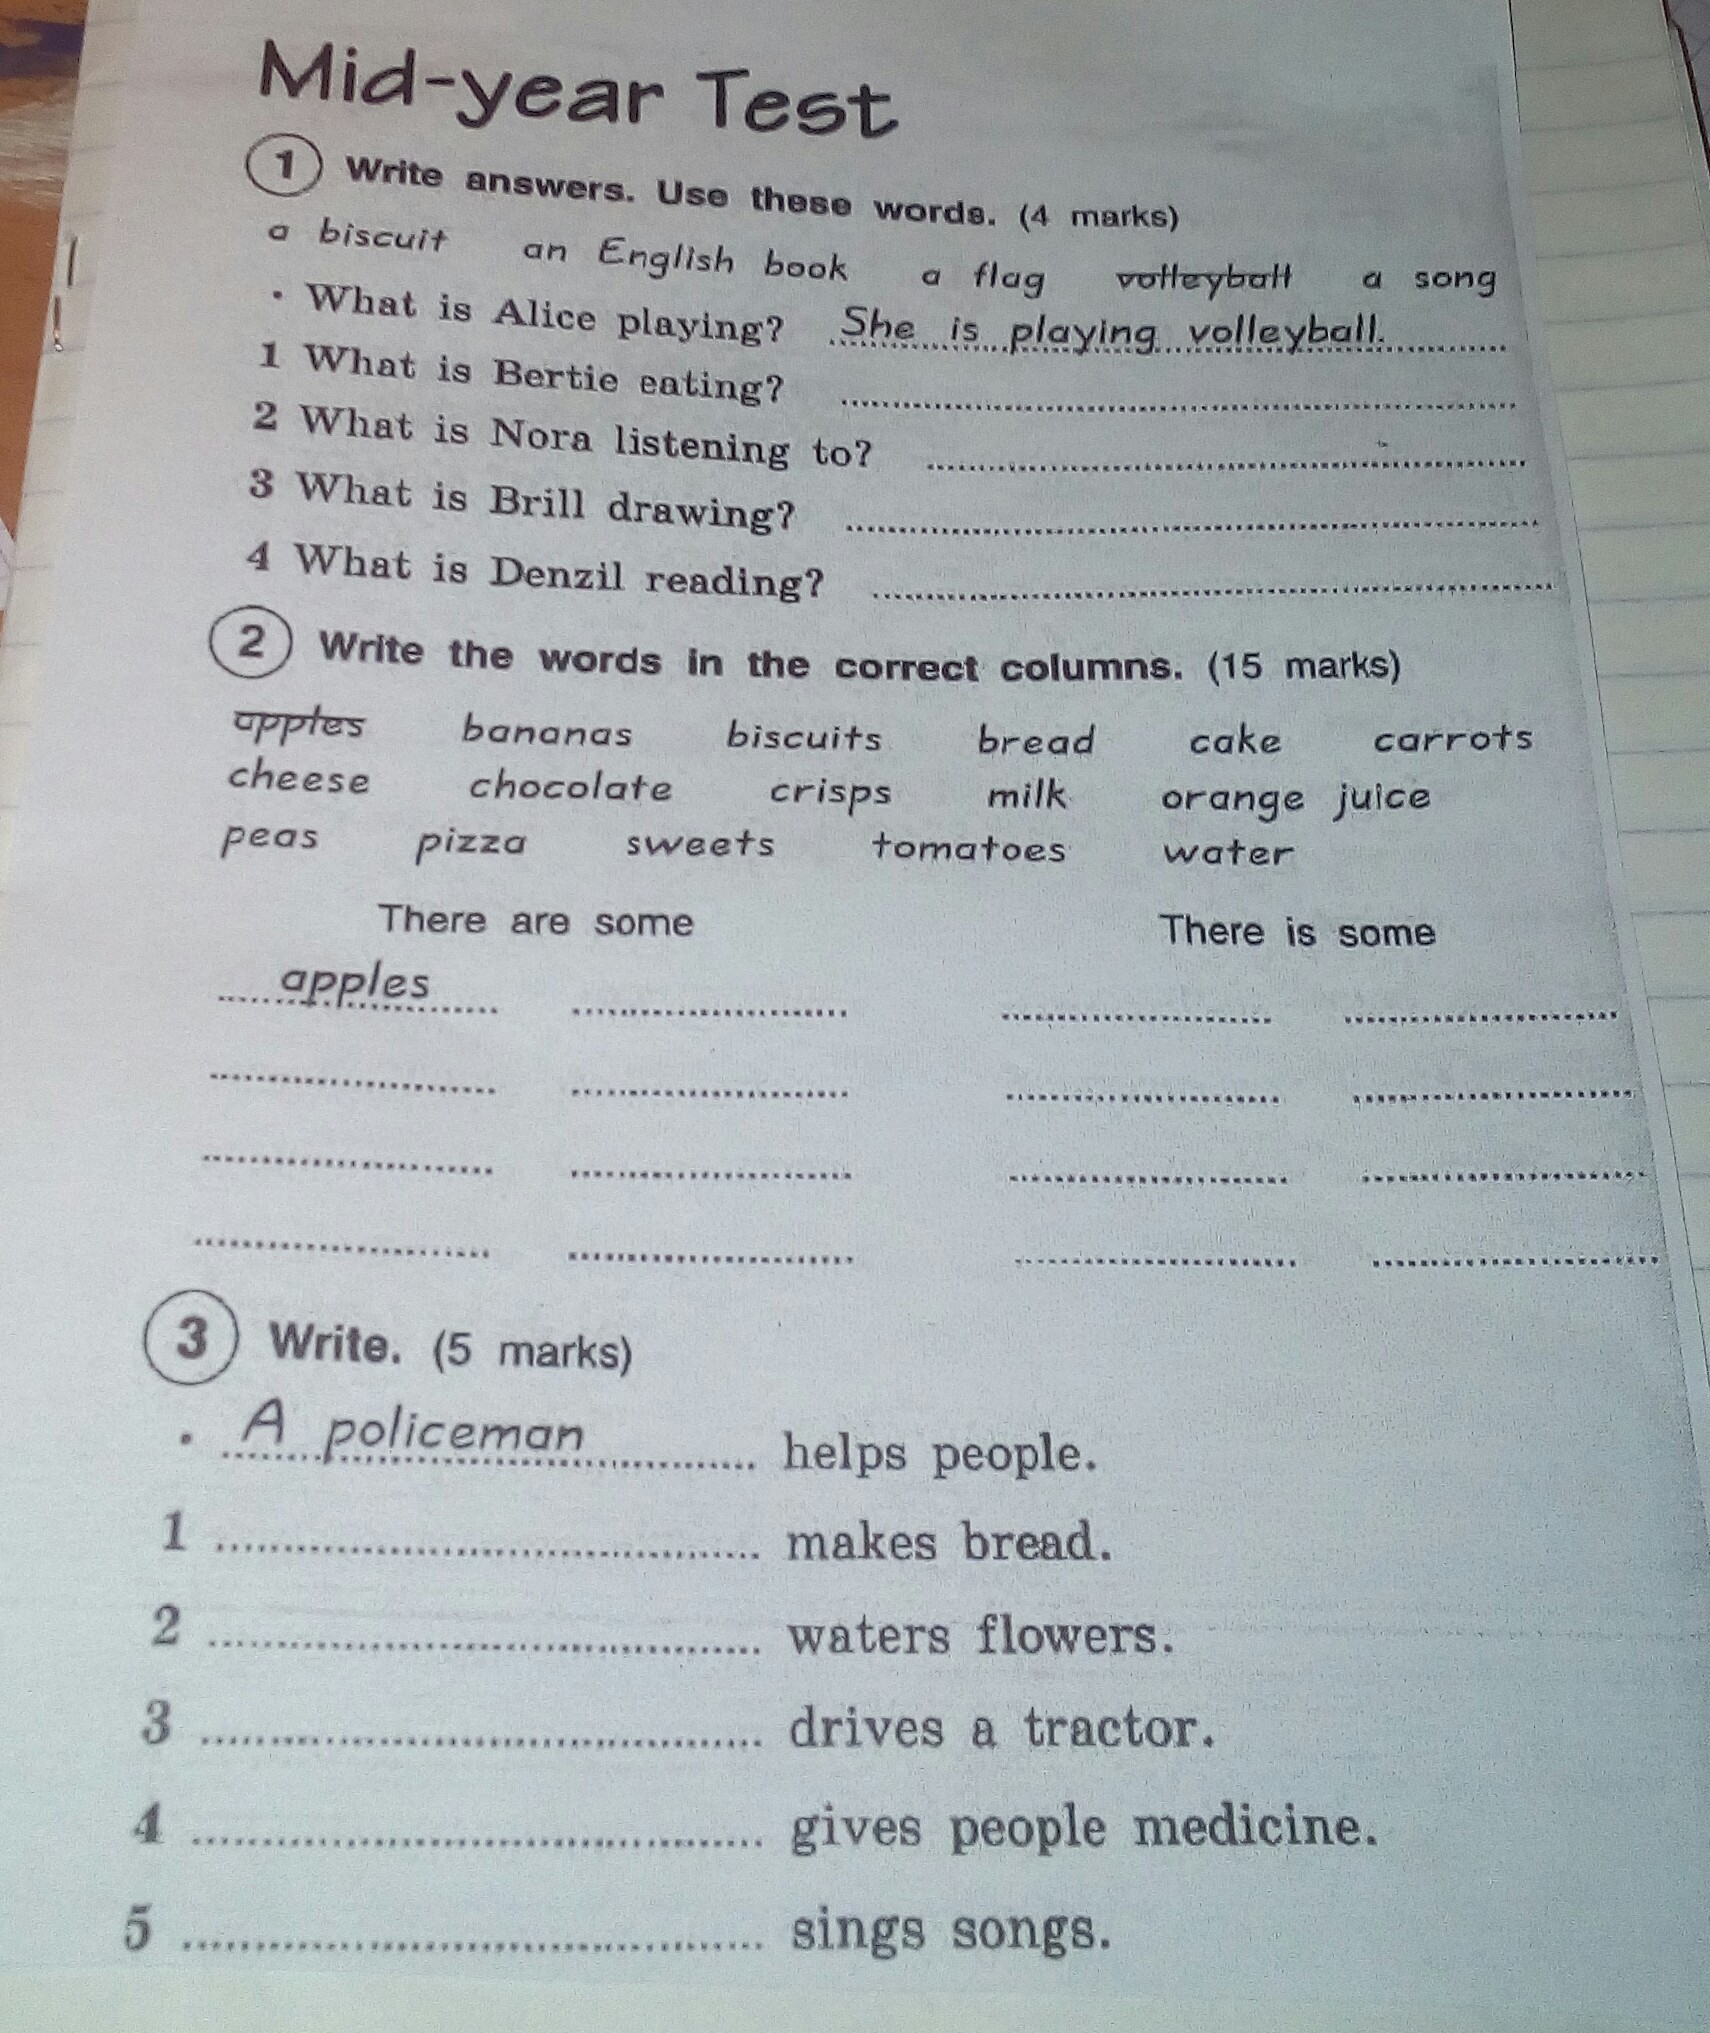 Mid-year Test
1 Write answers. Use these words. (4 marks)
a biscuit an English book a flag volleyball a song
• What is Alice playing? She is playing volleyball.
1 What is Bertie eating?
2 What is Nora listening to?
3 What is Brill drawing?
4 What is Denzil reading?
2 Write the words in the correct columns. (15 marks)
apples bananas biscuits bread cake carrots
cheese chocolate crisps milk orange juice
peas pizza sweets tomatoes water
There are some There is some
apples
3 Write. (5 marks)
• A policeman helps people.
1 makes bread.
2 waters flowers.
3 drives a tractor.
4 gives people medicine.
5 sings songs.